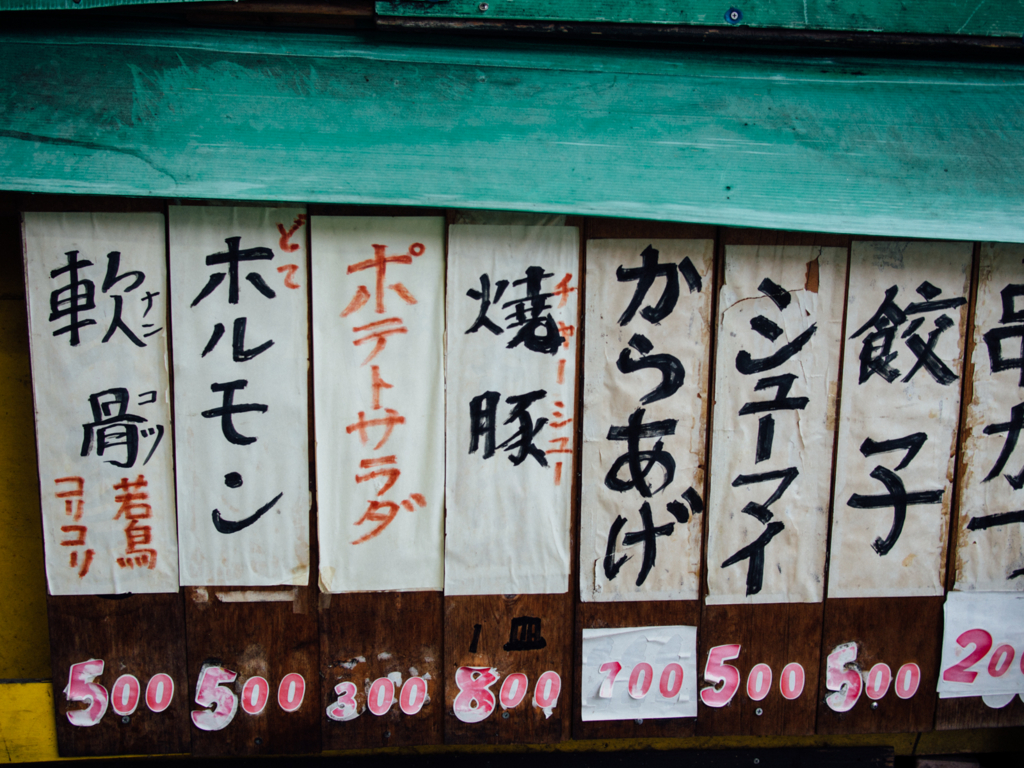 串カ
200
餃子
500
シューマイ
500
からあげ
700
燒豚
チャーシュー
1皿
800
ポテトサラダ
300
どて
ホルモン
500
軟骨
ナンコツ
若鳥
コリコリ
500